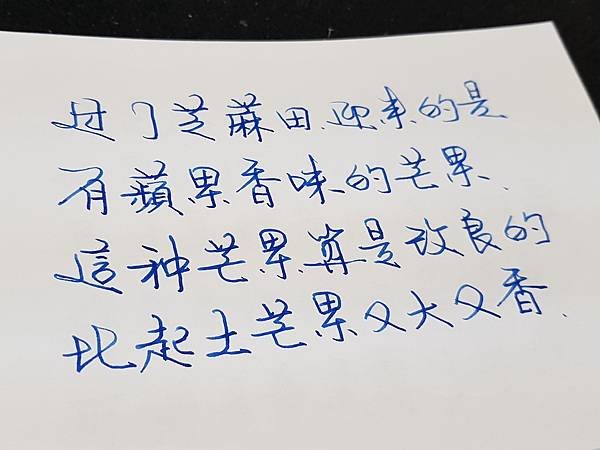 过了芝蔴田、迎来的是
有蘋果香味的芒果、
這种芒果算是改良的
比起土芒果又大又香、